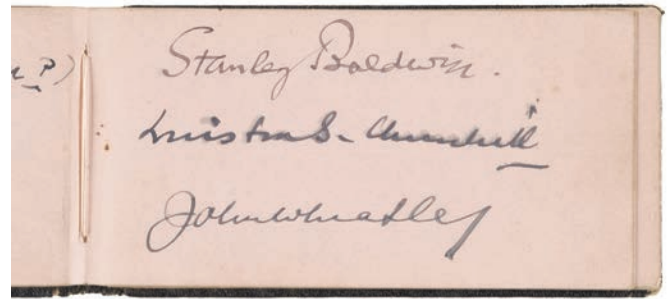 P)
Stanley Baldwin.
Winston S. Churchill
John Wheatley